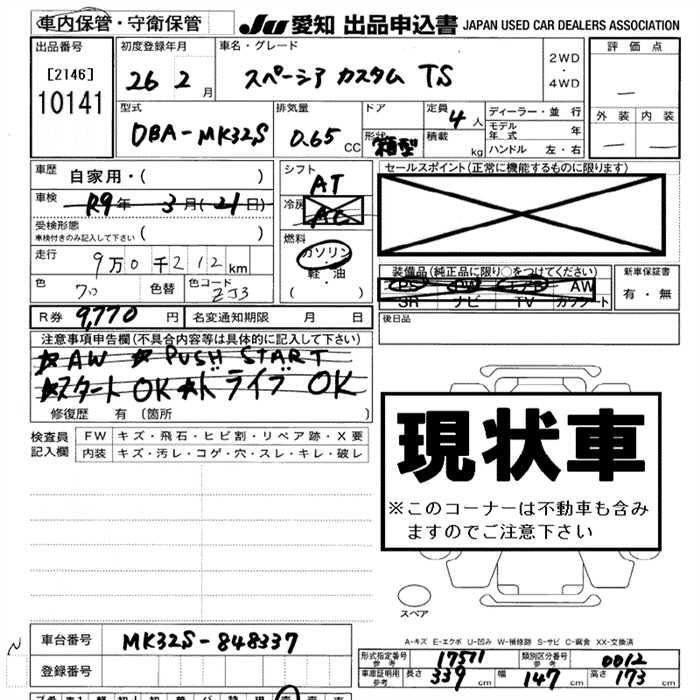 車内保管・守衛保管
JU 愛知 出品申込書 JAPAN USED CAR DEALERS ASSOCIATION
出品番号
[2146]
10141
初度登録年月
26 2 月
車名・グレード
スペーシア カスタム TS
2WD
・
4WD
評価点
—
外装 内装
— —
型式
DBA-MK32S
排気量
0.65 CC
ドア
形状
箱型
定員 4 人
積載 kg
ディーラー・並行
モデル年式 年
ハンドル 左・右
車歴
自家用・( )
車検
R9年 3月(21日)
受検形態
車検付きのみ記入して下さい ( )
走行
9万0千212km
色 色替 色コード
クロ ZJ3
シフト
AT
冷房
AC
燃料
ガソリン
・
軽・油
( )
セールスポイント(正常に機能するものに限ります)
装備品(純正品に限り○をつけてください)
PS PW エアB AW
SR ナビ TV カワシート
新車保証書
有・無
R券 9,770 円
名変通知期限 月 日
後日品
注意事項申告欄(不具合内容等は具体的に記入して下さい)
☆AW ☆PUSH START
☆スタートOK ☆ドライブ OK
修復歴 有 (箇所 )
検査員記入欄
FW キズ・飛石・ヒビ割・リペア跡・X要
内装 キズ・汚レ・コゲ・穴・スレ・キレ・破レ
現状車
※このコーナーは不動車も含み
ますのでご注意下さい
スペア
A-キズ E-エクボ U-凹み W-補修跡 S-サビ C-腐食 XX-交換済
車台番号
MK32S-848337
登録番号
形式指定番号 参考 17571
類別区分番号 参考 0012
車庫証明用 参考 長さ 339 幅 147 高さ 173